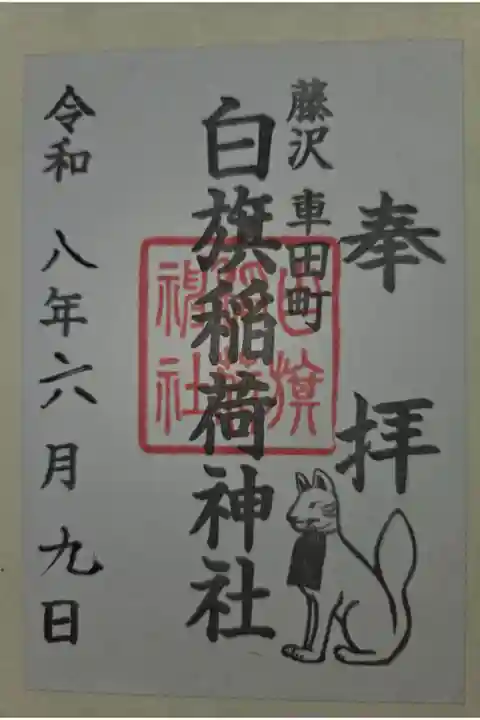 奉拝
藤沢 車田町
白旗稲荷神社
白旗
稲荷
神社
令和 八年六月九日